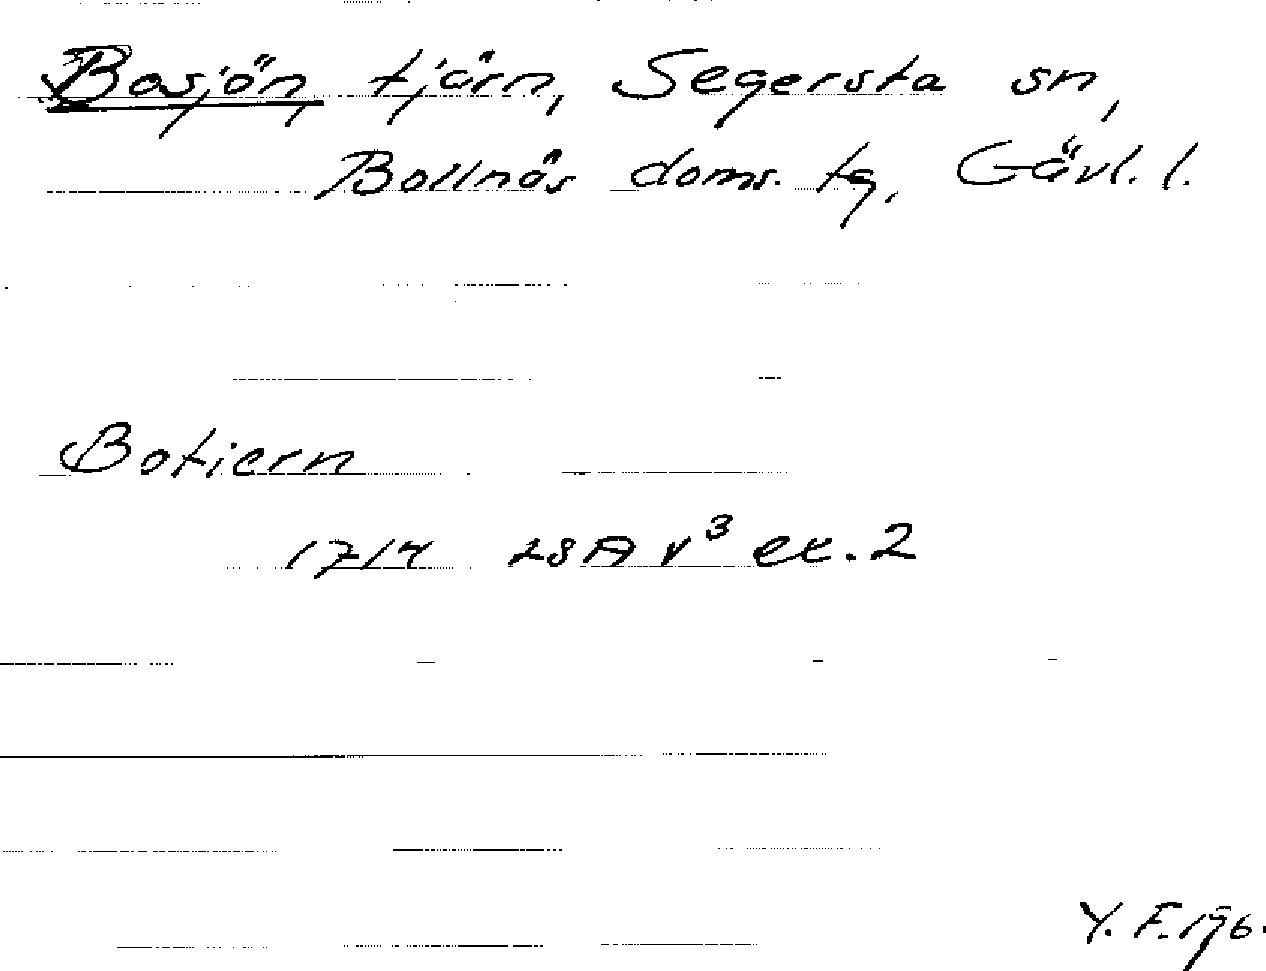 Bosjön, tjärn, Segersta sn,
Bollnäs doms. tg, Gävl. l.
Botjern
1714 28A v³ ex. 2
Y. F. 196.